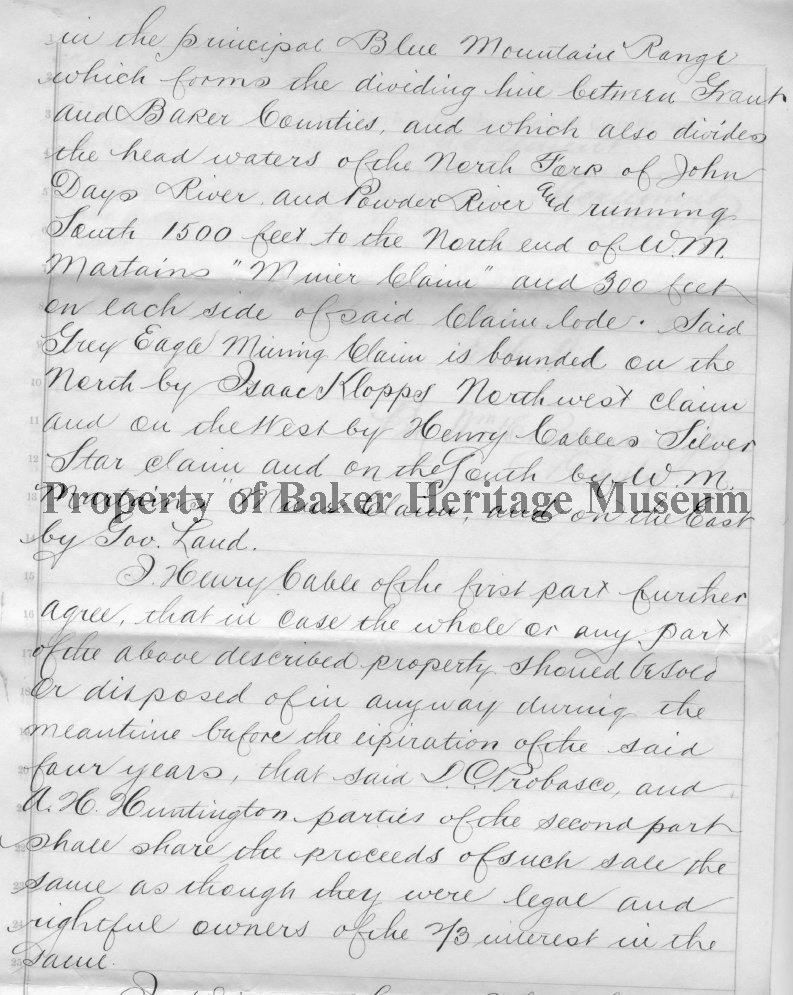 in the principal Blue Mountain Range
which forms the dividing line between Grant
and Baker Counties, and which also divides
the head waters of the North Fork of John
Days River, and Powder River and running
South 1500 feet to the North end of W.M.
Martains "Minier Claim" and 300 feet
on each side of said Claim lode. Said
Grey Eagle Mining Claim is bounded on the
North by Isaac Klopps Northwest claim
and on the West by Henry Cables Silver
Star claim and on the South by W.M.
Martains Claim", and on the East
Property of Baker Heritage Museum
by Gov. Land.
I. Henry Cable of the first part further
agree, that in case the whole or any part
of the above described property should be sold
or disposed of in anyway during the
meantime before the expiration of the said
four years, that said D.C. Probasco, and
A. H. Huntington parties of the second part
shall share the proceeds of such sale the
same as though they were legal and
rightful owners of the 2/3 interest in the
same.